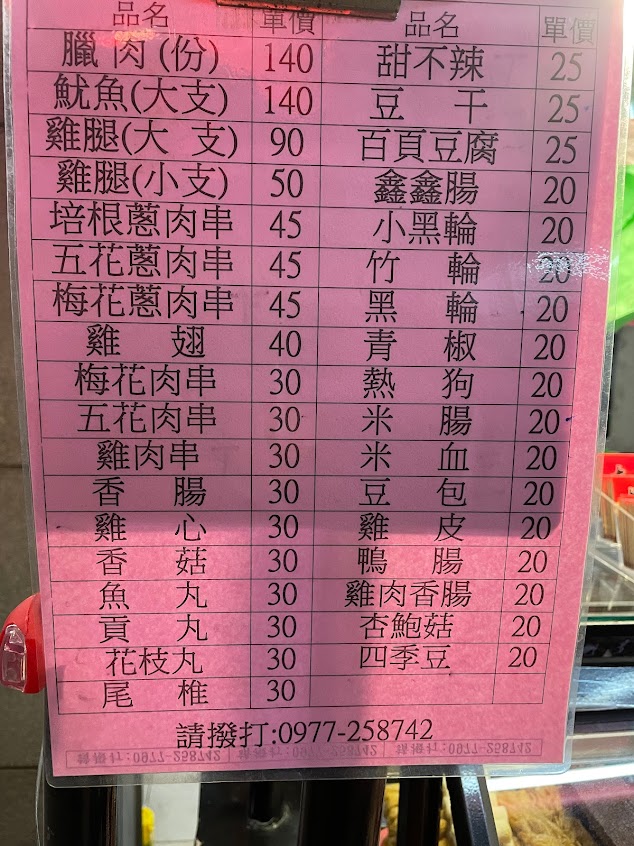 品名 單價 品名 單價
臘肉(份) 140 甜不辣 25
魷魚(大支) 140 豆干 25
雞腿(大支) 90 百頁豆腐 25
雞腿(小支) 50 鑫鑫腸 20
培根蔥肉串 45 小黑輪 20
五花蔥肉串 45 竹輪 20
梅花蔥肉串 45 黑輪 20
雞翅 40 青椒 20
梅花肉串 30 熱狗 20
五花肉串 30 米腸 20
雞肉串 30 米血 20
香腸 30 豆包 20
雞心 30 雞皮 20
香菇 30 鴨腸 20
魚丸 30 雞肉香腸 20
貢丸 30 杏鮑菇 20
花枝丸 30 四季豆 20
尾椎 30
請撥打:0977-258742
請撥打:0977-258742 請撥打:0977-258742 請撥打:0977-258742